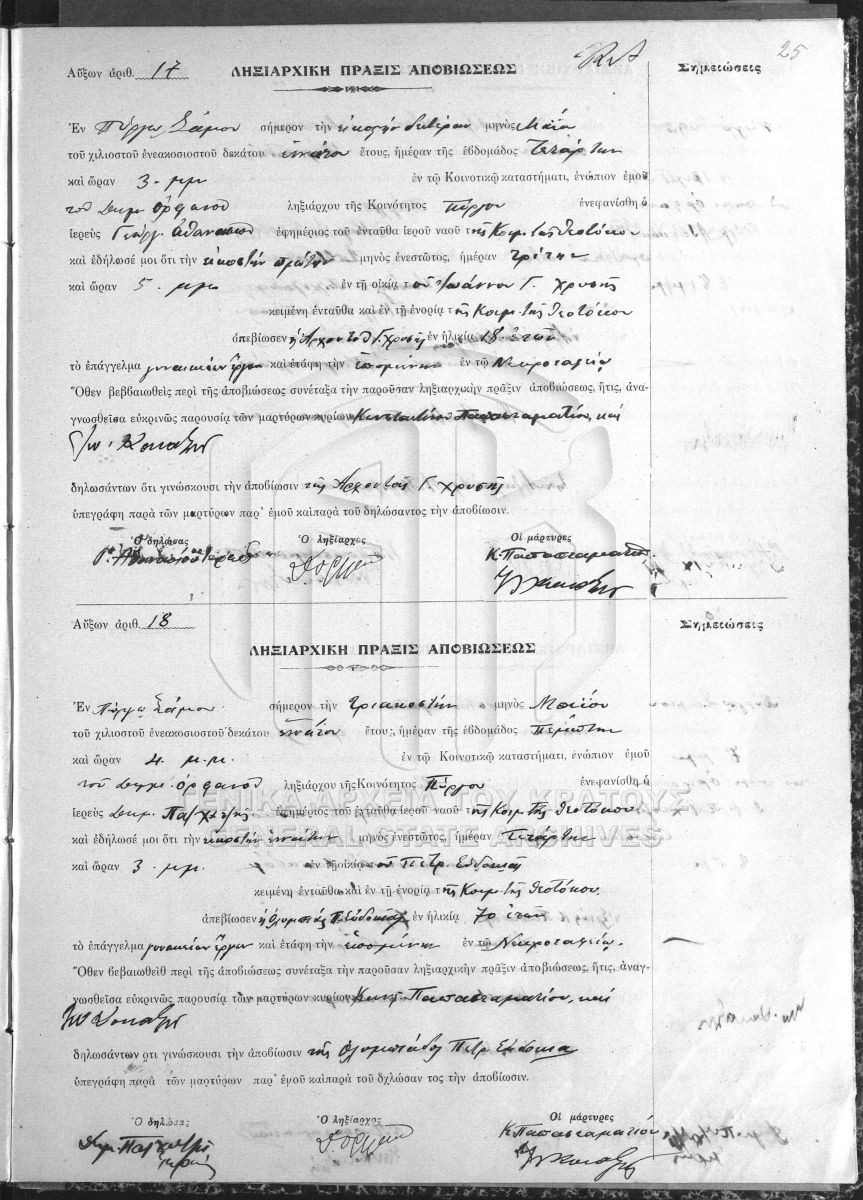 25
Αὔξων ἀριθ. 17
ΛΗΞΙΑΡΧΙΚΗ ΠΡΑΞΙΣ ΑΠΟΒΙΩΣΕΩΣ
Σημειώσεις
Ἐν Πύργῳ Σάμου σήμερον τὴν εἰκοστὴν δευτέραν μηνὸς Μαΐου
τοῦ χιλιοστοῦ ἐνεακοσιοστοῦ δεκάτου ἐννάτου ἔτους, ἡμέραν τῆς ἑβδομάδος Τετάρτην
καὶ ὥραν 3. μμ ἐν τῷ Κοινοτικῷ καταστήματι, ἐνώπιον ἐμοῦ
τοῦ Δημ. Ὀρφανοῦ ληξιάρχου τῆς Κοινότητος Πύργου ἐνεφανίσθη ὁ
ἱερεὺς Γεώργ. Ἀθανασίου ἐφημέριος τοῦ ἐνταῦθα ἱεροῦ ναοῦ τῆς Κοιμ. τῆς Θεοτόκου
καὶ ἐδήλωσέ μοι ὅτι τὴν εἰκοστὴν πρώτην μηνὸς ἐνεστῶτος, ἡμέραν Τρίτην
καὶ ὥραν 5. μμ ἐν τῇ οἰκίᾳ τοῦ Ἰωάννου Γ. Χρυσῆς
κειμένῃ ἐνταῦθα καὶ ἐν τῇ ἐνορίᾳ τῆς Κοιμ. τῆς Θεοτόκου
ἀπεβίωσεν ἡ Ἀρχοντοῦ Γ. Χρυσῆς ἐν ἡλικίᾳ 18 ἐτῶν
τὸ ἐπάγγελμα γυναικείων ἔργων καὶ ἐτάφη τὴν ἑπομένην ἐν τῷ Νεκροταφείῳ
Ὅθεν βεββαιωθεὶς περὶ τῆς ἀποβιώσεως συνέταξα τὴν παροῦσαν ληξιαρχικὴν πρᾶξιν ἀποβιώσεως, ἥτις, ἀνα-
γνωσθεῖσα εὐκρινῶς παρουσίᾳ τῶν μαρτύρων κυρίων Κωνσταντίνου Παπασταματίου, καὶ
δηλωσάντων ὅτι γινώσκουσι τὴν ἀποβίωσιν τῆς Ἀρχοντοῦς Γ. Χρυσῆς
ὑπεγράφη παρὰ τῶν μαρτύρων παρ' ἐμοῦ καὶ παρὰ τοῦ δηλώσαντος τὴν ἀποβίωσιν.
Ὁ δηλώσας Ὁ ληξίαρχος Οἱ μάρτυρες
Κ. Παπασταματίου
Αὔξων ἀριθ. 18
Σημειώσεις
ΛΗΞΙΑΡΧΙΚΗ ΠΡΑΞΙΣ ΑΠΟΒΙΩΣΕΩΣ
Ἐν Πύργῳ Σάμου σήμερον τὴν τριακοστὴν μηνὸς Μαΐου
τοῦ χιλιοστοῦ ἐνεακοσιοστοῦ δεκάτου ἐννάτου ἔτους, ἡμέραν τῆς ἑβδομάδος Πέμπτην
καὶ ὥραν 4. μ.μ. ἐν τῷ Κοινοτικῷ καταστήματι, ἐνώπιον ἐμοῦ
τοῦ Δημ. Ὀρφανοῦ ληξιάρχου τῆς Κοινότητος Πύργου ἐνεφανίσθη ὁ
ΓΕΝΙΚΑ ΑΡΧΕΙΑ ΤΟΥ ΚΡΑΤΟΥΣ
ἱερεὺς Δημ. ἐφημέριος τοῦ ἐνταῦθα ἱεροῦ ναοῦ τῆς Κοιμ. τῆς Θεοτόκου
GENERAL STATE ARCHIVES
καὶ ἐδήλωσέ μοι ὅτι τὴν εἰκοστὴν ἐννάτην μηνὸς ἐνεστῶτος, ἡμέραν Τετάρτην
καὶ ὥραν 3. μμ. ἐν τῇ οἰκίᾳ τοῦ Πετρ. Εὐδοκιᾶ
κειμένῃ ἐνταῦθα καὶ ἐν τῇ ἐνορίᾳ τῆς Κοιμ. τῆς Θεοτόκου.
ἀπεβίωσεν ἡ Ὀλυμπιὰς Π. Εὐδοκιᾶ ἐν ἡλικίᾳ 70 ἐτῶν
τὸ ἐπάγγελμα γυναικείων ἔργων καὶ ἐτάφη τὴν ἑπομένην ἐν τῷ Νεκροταφείῳ.
Ὅθεν βεβαιωθεὶθ περὶ τῆς ἀποβιώσεως συνέταξα τὴν παροῦσαν ληξιαρχικὴν πρᾶξιν ἀποβιώσεως, ἥτις, ἀναγ-
γνωσθεῖσα εὐκρινῶς παρουσίᾳ τῶν μαρτύρων κυρίων Κωνστ. Παπασταματίου, καὶ
δηλωσάντων ὅτι γινώσκουσι τὴν ἀποβίωσιν τῆς Ὀλυμπιάδος Πετρ. Εὐδοκιᾶ
ὑπεγράφη παρὰ τῶν μαρτύρων παρ' ἐμοῦ καὶπαρὰ τοῦ δχλώσαν τος τὴν ἀποβίωσιν.
Ὁ δηλώσας Ὁ ληξίαρχος Οἱ μάρτυρες
Κ. Παπασταματίου